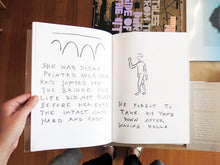 SHE WAS DISAP
POINTED. ONCE SHE
HAD JUMPED OFF
THE BRIDGE HER
LIFE DID NOT FLASH
BEFORE HER EYES.
THE IMPACT CAME
HARD AND FAST
HE FORGOT TO
TAKE HIS HAND
DOWN AFTER
WAVING HELLO